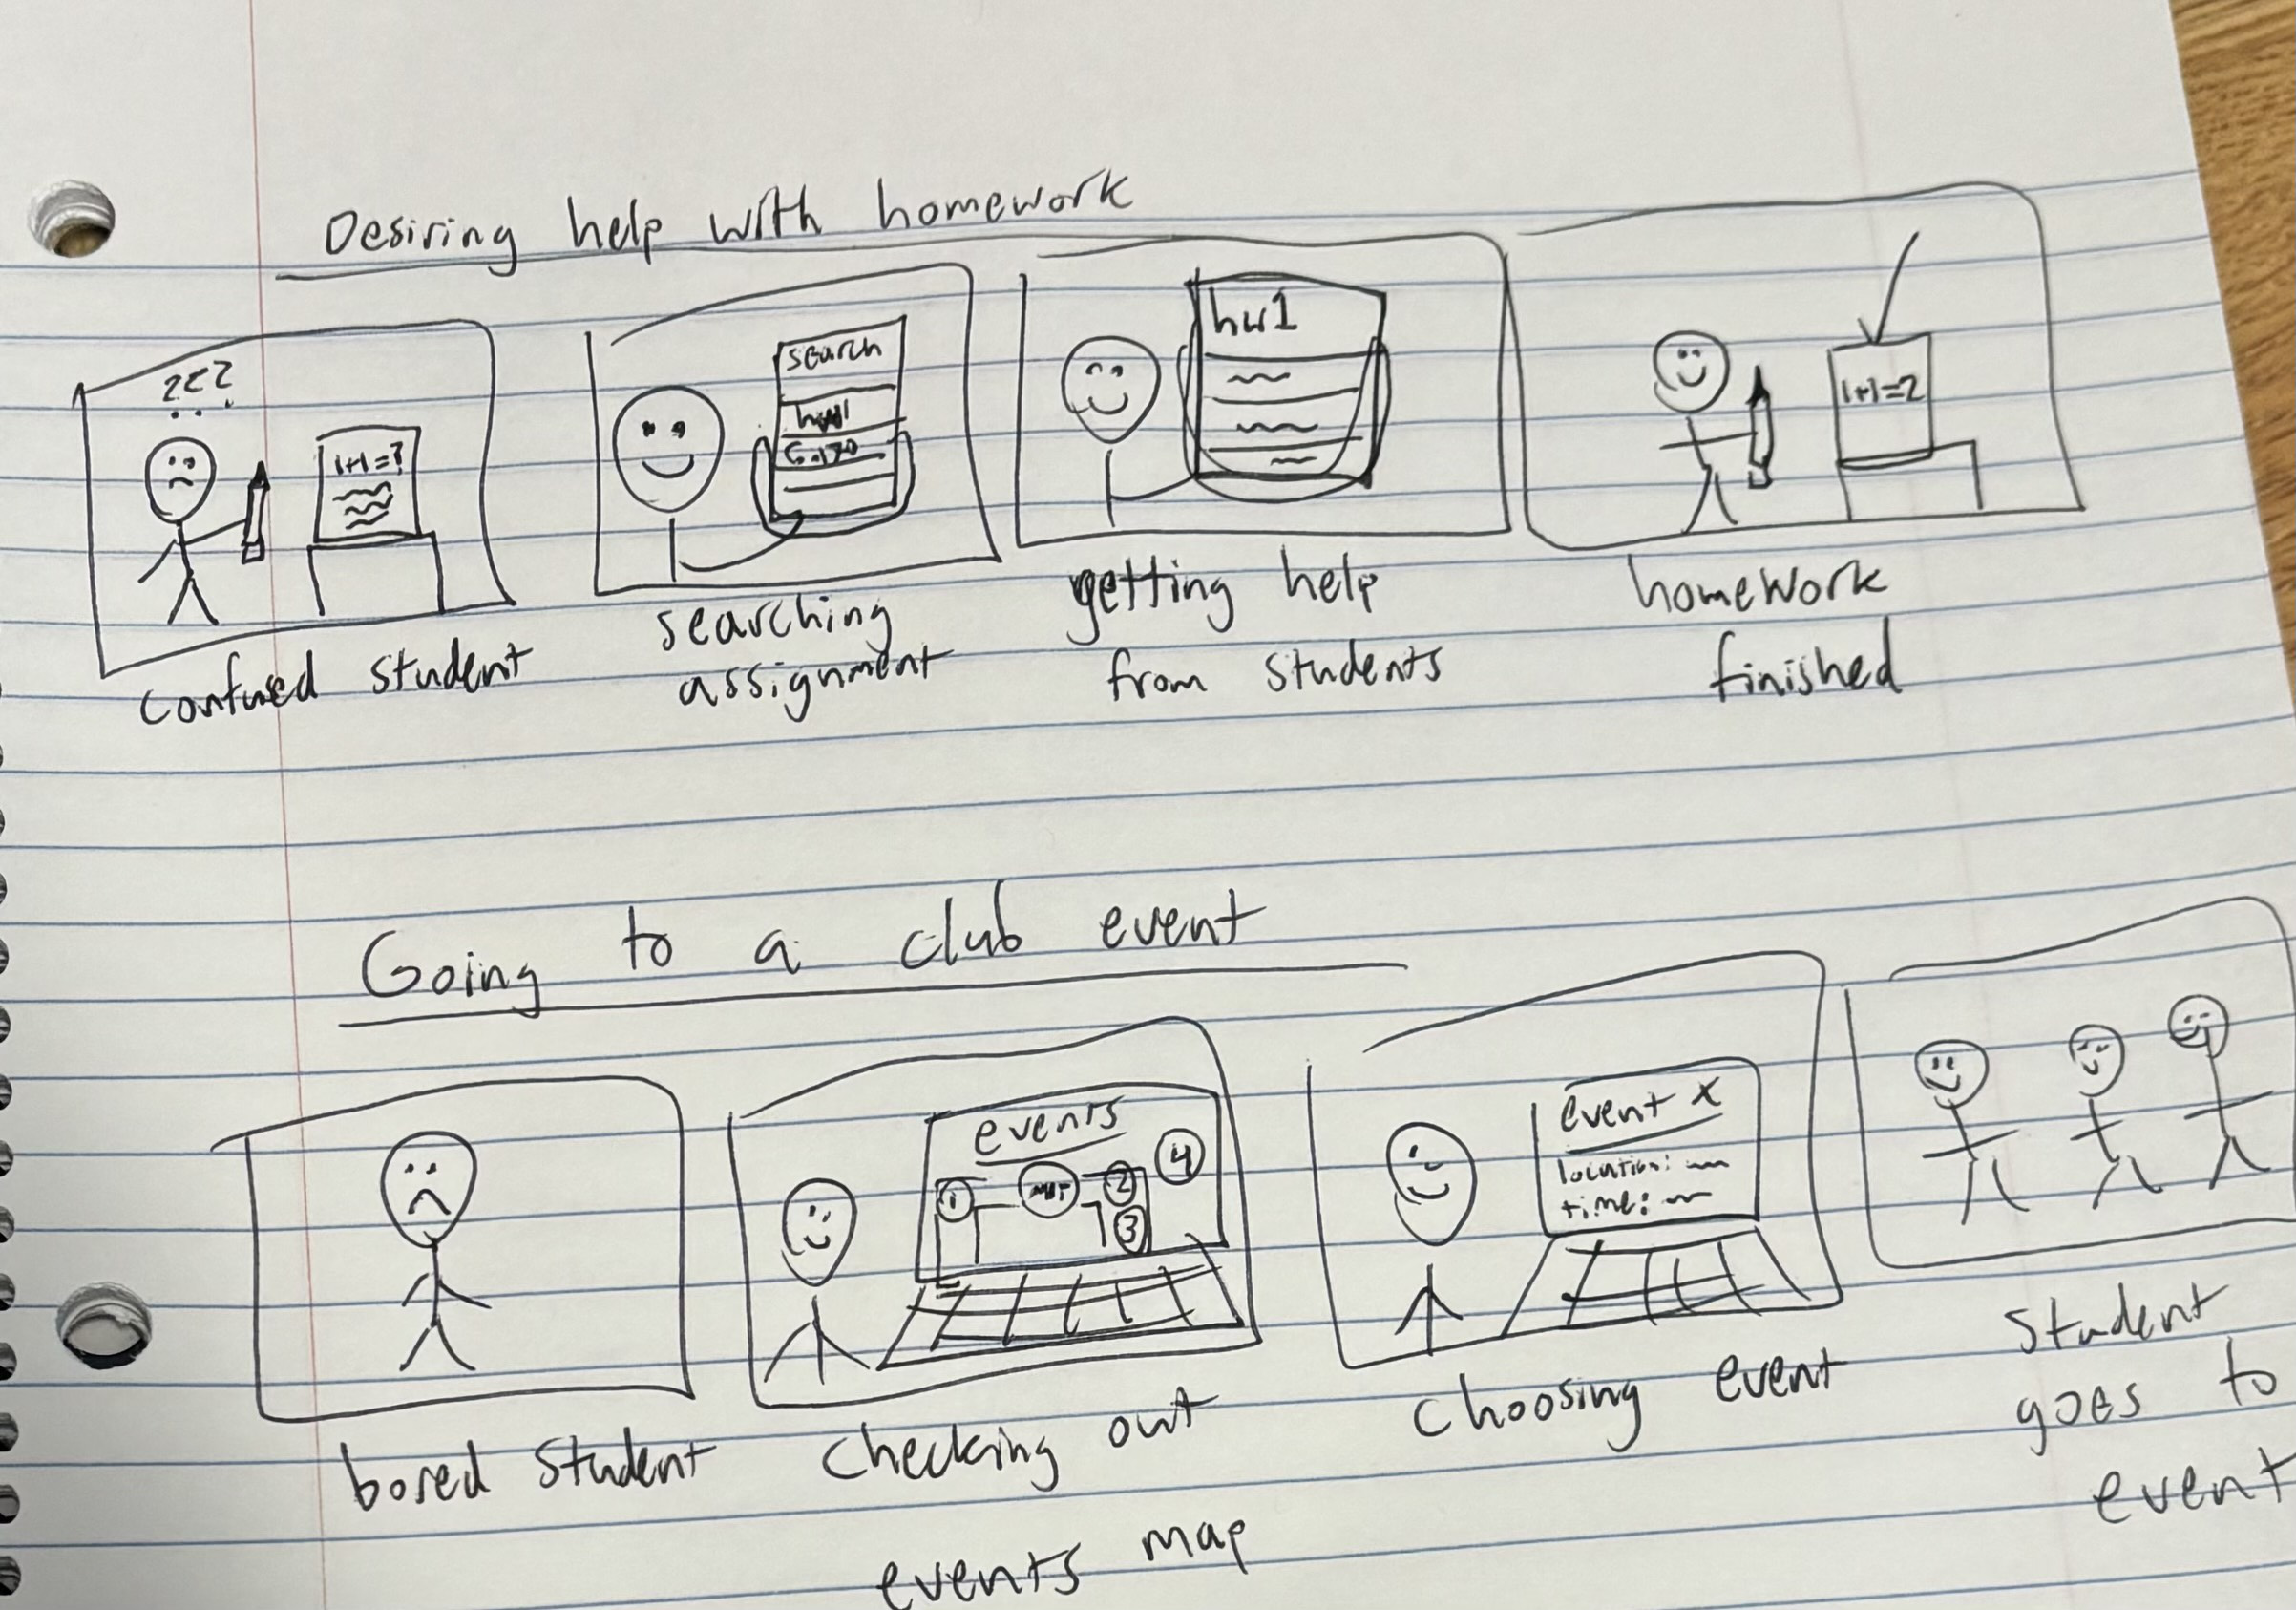 Desiring help with homework
???
1+1=?
search
hw1
6.170
hw1
1+1=2
confused student
searching
assignment
getting help
from students
homework
finished
Going to a club event
events
1
2
3
4
event x
location:
time:
bored student
checking out
events map
choosing event
student
goes to
event